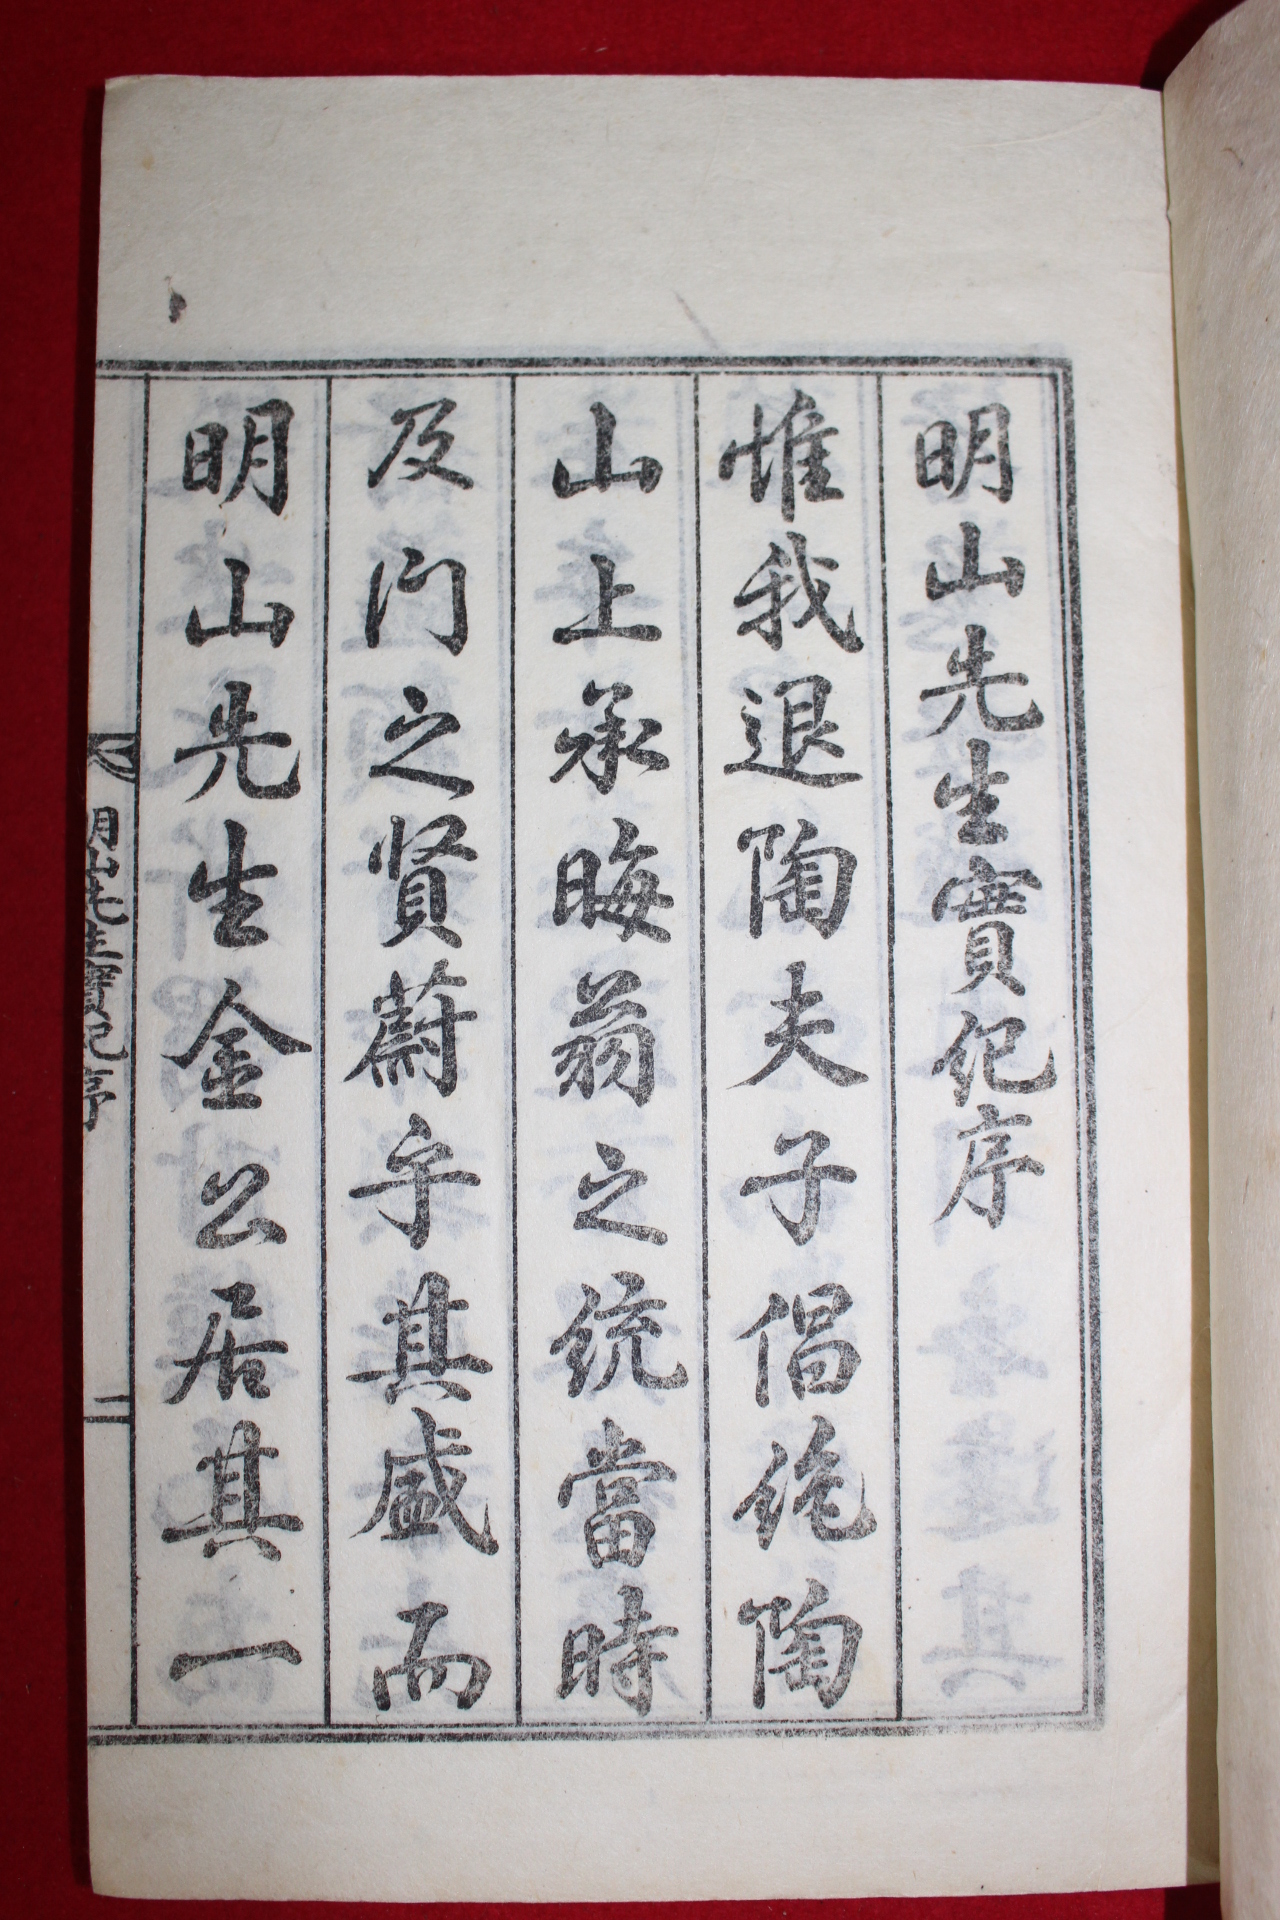 明山先生實紀序
惟我退陶夫子倡絶陶
山上承晦翁之統當時
及门之賢蔚乎其盛而
明山先生金公居其一
明山先生實紀序
二